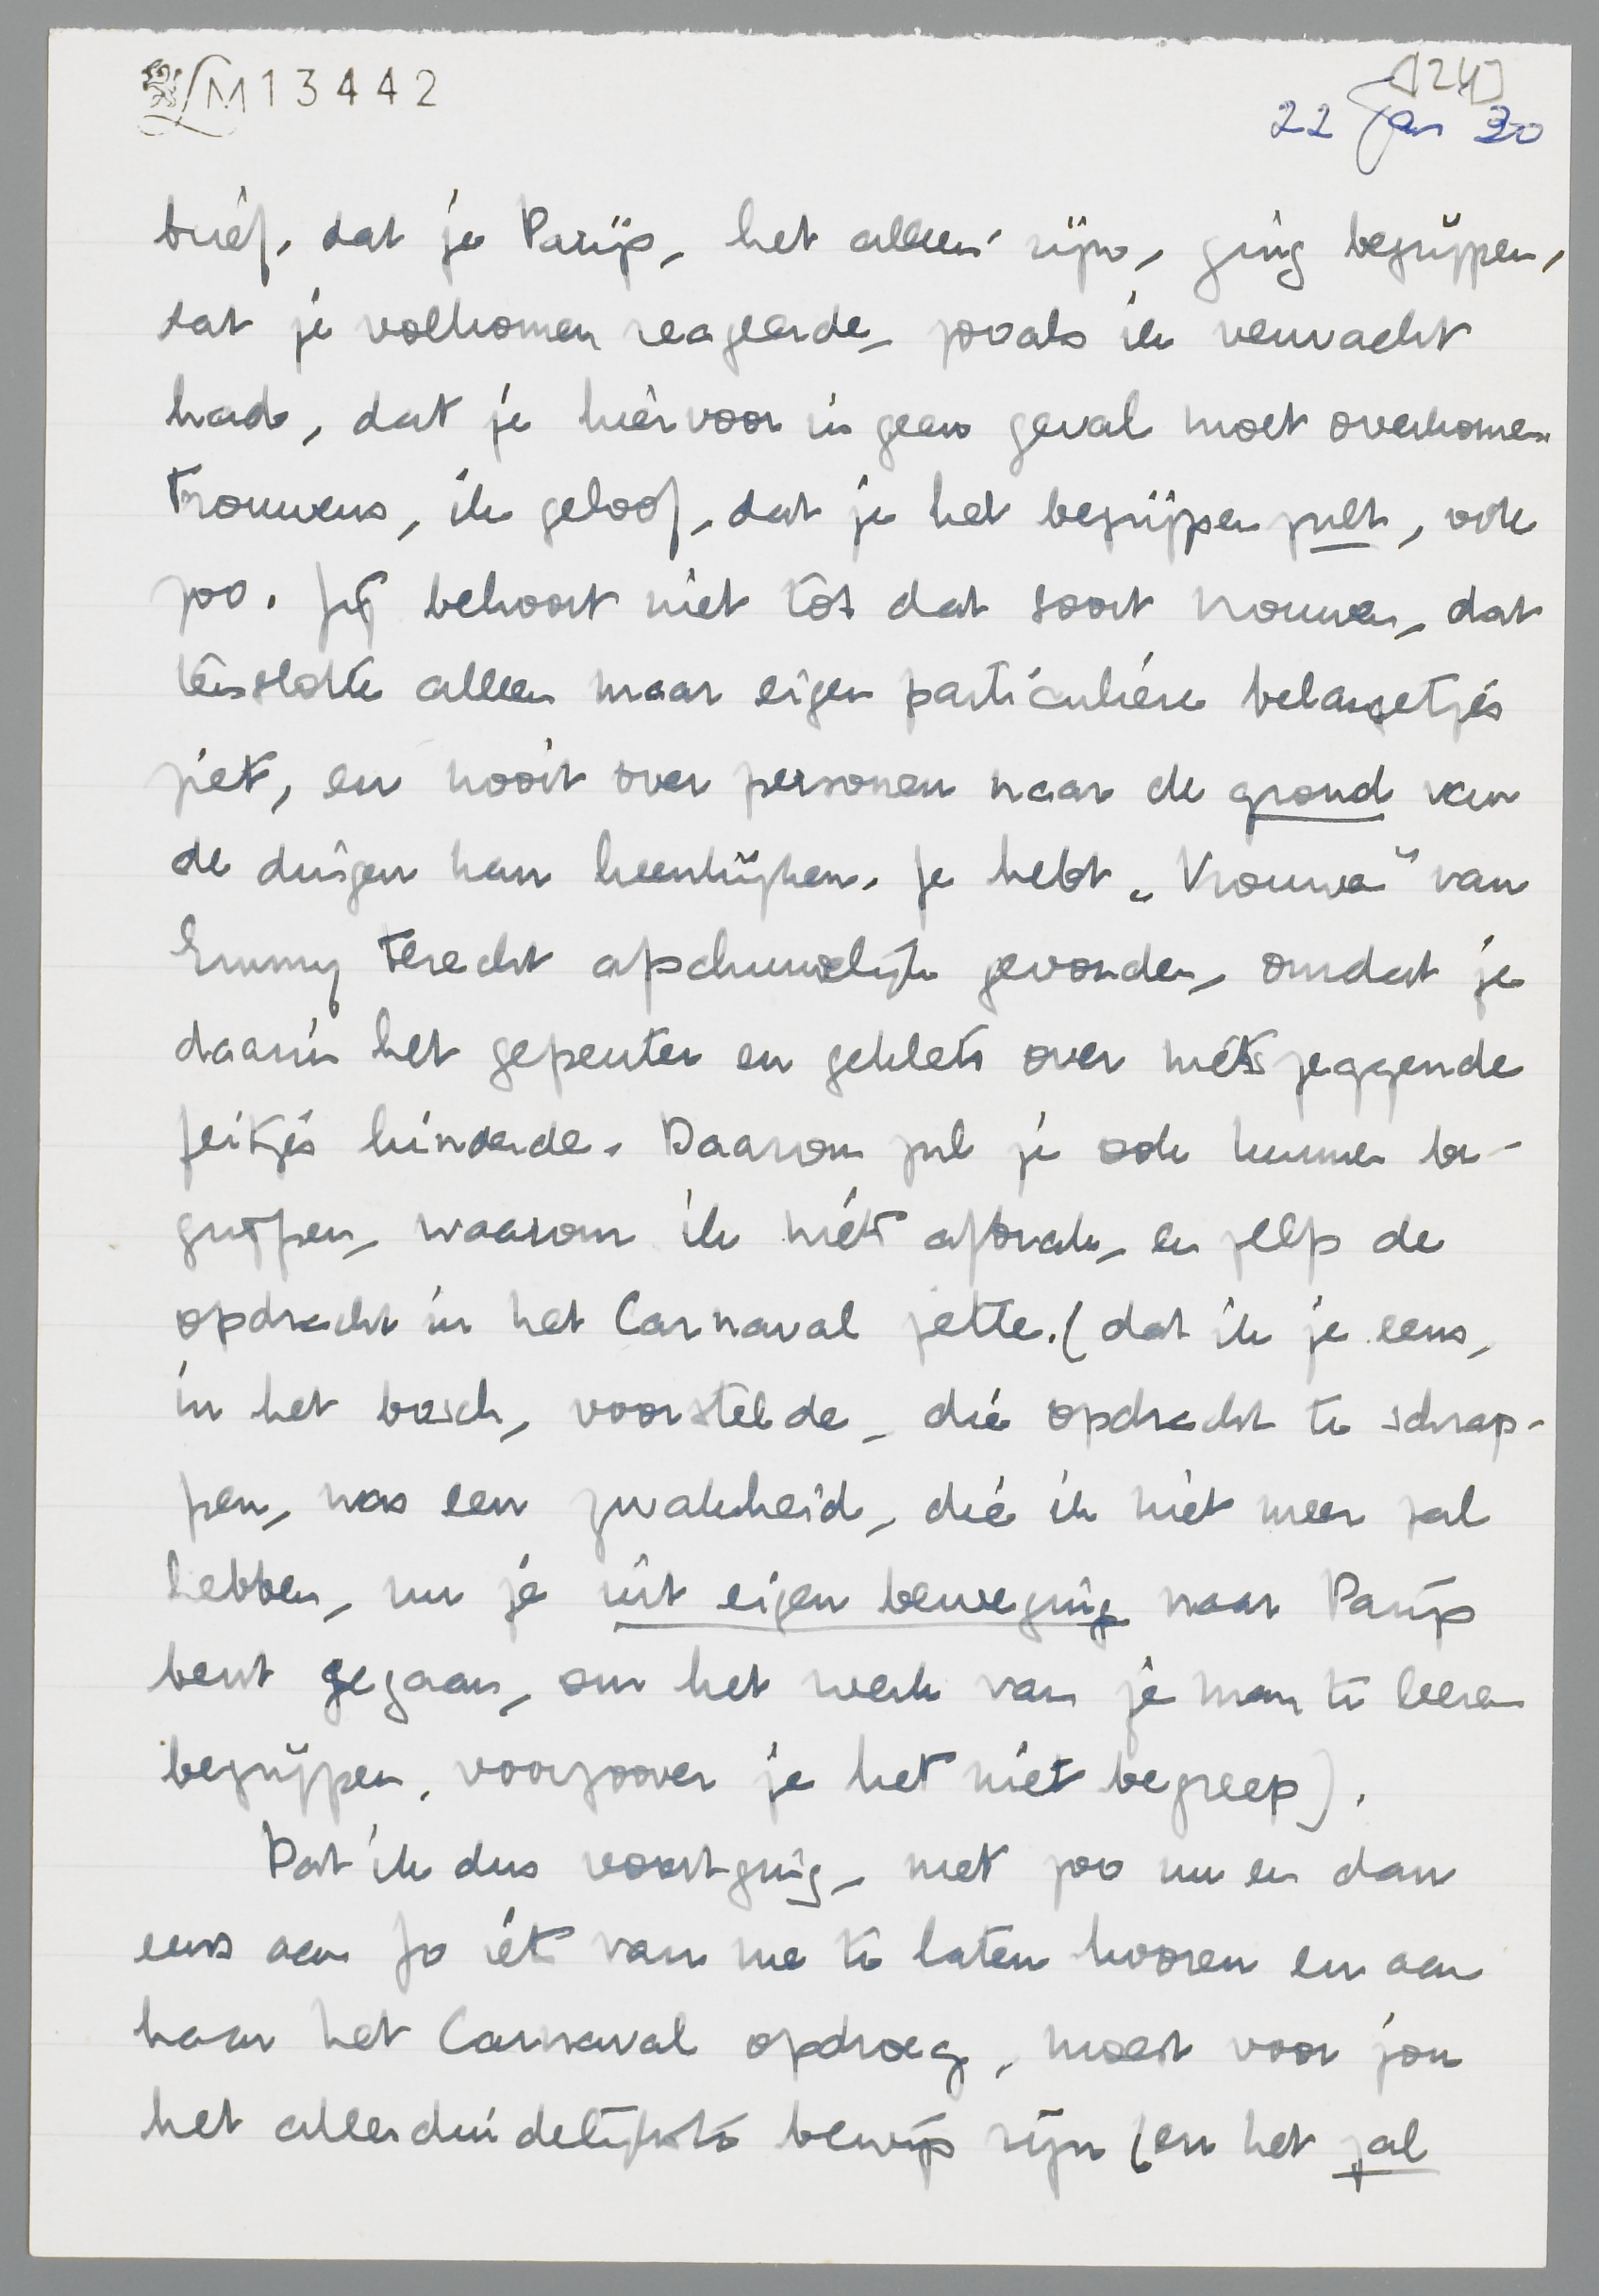 LM13442
[24]
22 Jan 30
brief, dat je Parijs, het alleen zijn, ging begrijpen,
dat je volkomen reageerde, zooals ik verwacht
had, dat je hiervoor in geen geval moet overkomen.
Trouwens, ik geloof, dat je het begrijpen zult, ook
zoo. Jij behoort niet tot dat soort vrouwen, dat
tenslotte alleen maar eigen particuliere belangetjes
ziet, en nooit over personen naar de grond van
de dingen kan heenkijken. Je hebt „Vrouwen" van
Emmy terecht afschuwelijk gevonden, omdat je
daarin het gepeuter en geklets over nietszeggende
feitjes hinderde. Daarom zul je ook kunnen be-
grijpen, waarom ik niets afbrak, en zelfs de
opdracht in het Carnaval zette. (dat ik je eens,
in het bosch, voorstelde, die opdracht te schrap-
pen, was een zwakheid, die ik niet meer zal
hebben, nu je uit eigen beweging naar Parijs
bent gegaan, om het werk van je man te leeren
begrijpen, voorzoover je het niet begreep).
Dat ik dus voortging, met zoo nu en dan
eens aan Jo iets van me te laten hooren en aan
haar het Carnaval opdroeg, moest voor jou
het allerduidelijkste bewijs zijn (en het zal